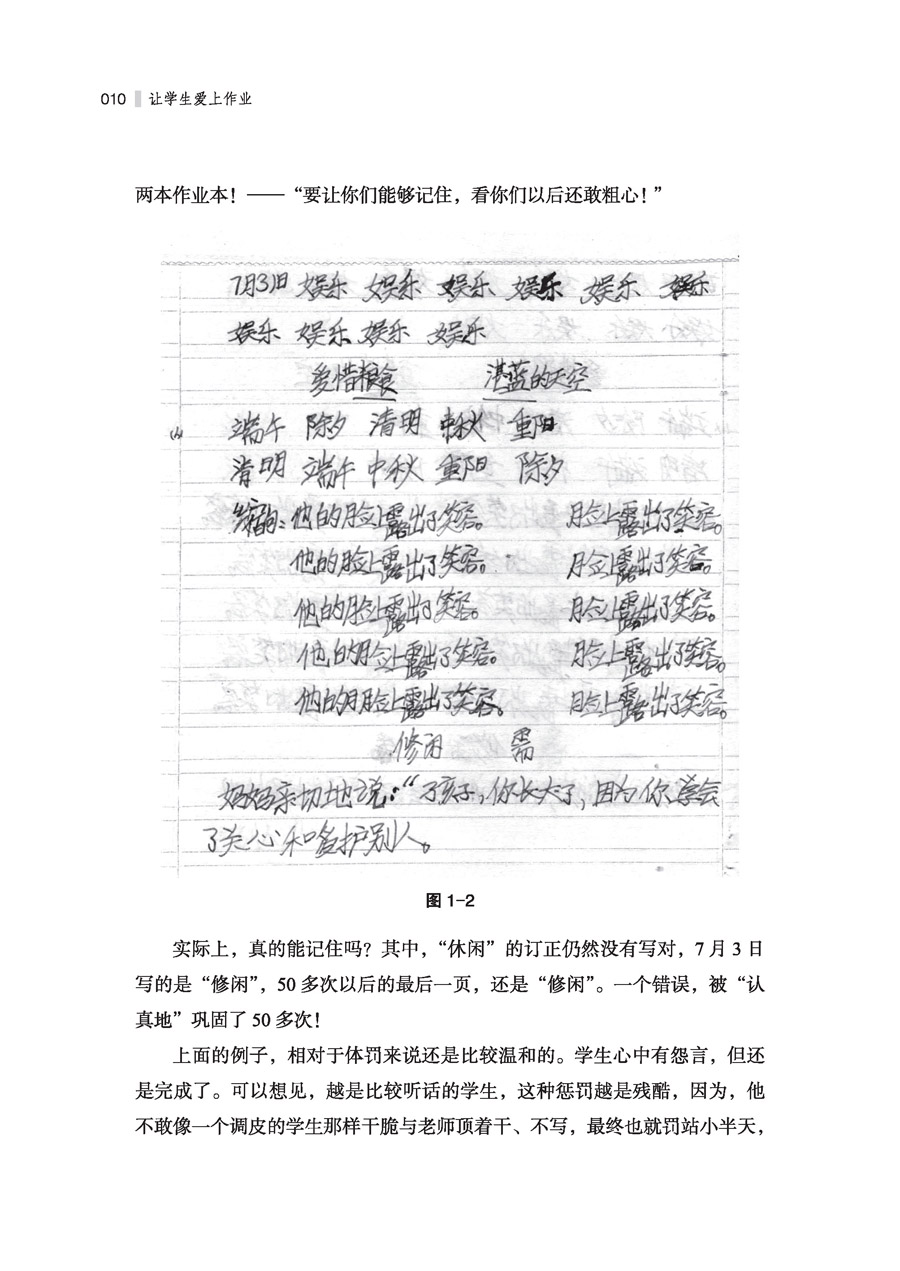 010 让学生爱上作业
两本作业本！——“要让你们能够记住，看你们以后还敢粗心！”
7月3日 娱乐 娱乐 娱乐 娱乐 娱乐 娱乐
娱乐 娱乐 娱乐 娱乐
爱惜粮食 湛蓝的天空
端午 除夕 清明 中秋 重阳
清明 端午 中秋 重阳 除夕
缩句：他的脸上露出了笑容。 脸上露出了笑容。
他的脸上露出了笑容。 脸上露出了笑容。
他的脸上露出了笑容。 脸上露出了笑容。
他的脸上露出了笑容。 脸上露出了笑容。
他的脸上露出了笑容。 脸上露出了笑容。
修闲 需
妈妈亲切地说：“孩子，你长大了，因为你学会
了关心和爱护别人。
图 1-2
实际上，真的能记住吗？其中，“休闲”的订正仍然没有写对，7 月 3 日
写的是“修闲”，50 多次以后的最后一页，还是“修闲”。一个错误，被“认
真地”巩固了 50 多次！
上面的例子，相对于体罚来说还是比较温和的。学生心中有怨言，但还
是完成了。可以想见，越是比较听话的学生，这种惩罚越是残酷，因为，他
不敢像一个调皮的学生那样干脆与老师顶着干、不写，最终也就罚站小半天，